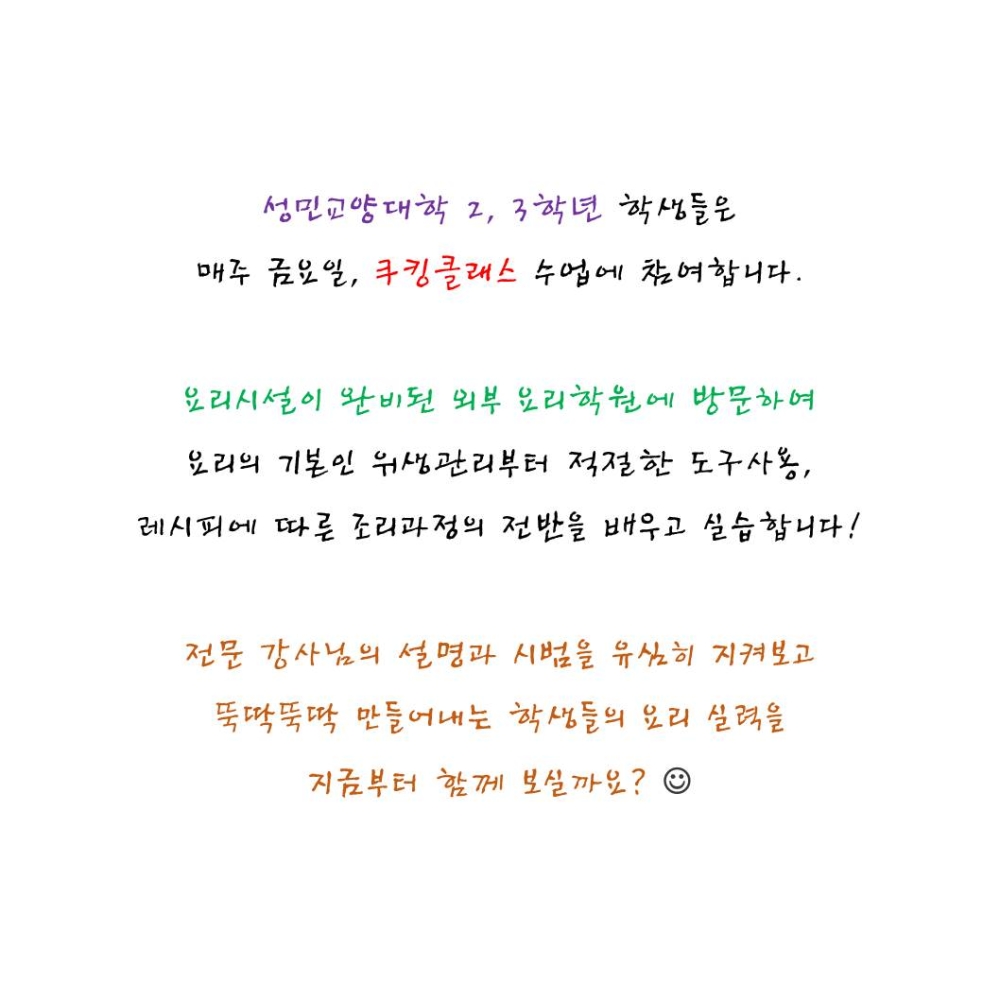 성민교양대학 2, 3학년 학생들은
매주 금요일, 쿠킹클래스 수업에 참여합니다.
요리시설이 완비된 외부 요리학원에 방문하여
요리의 기본인 위생관리부터 적절한 도구사용,
레시피에 따른 조리과정의 전반을 배우고 실습합니다!
전문 강사님의 설명과 시범을 유심히 지켜보고
뚝딱뚝딱 만들어내는 학생들의 요리 실력을
지금부터 함께 보실까요? ☺